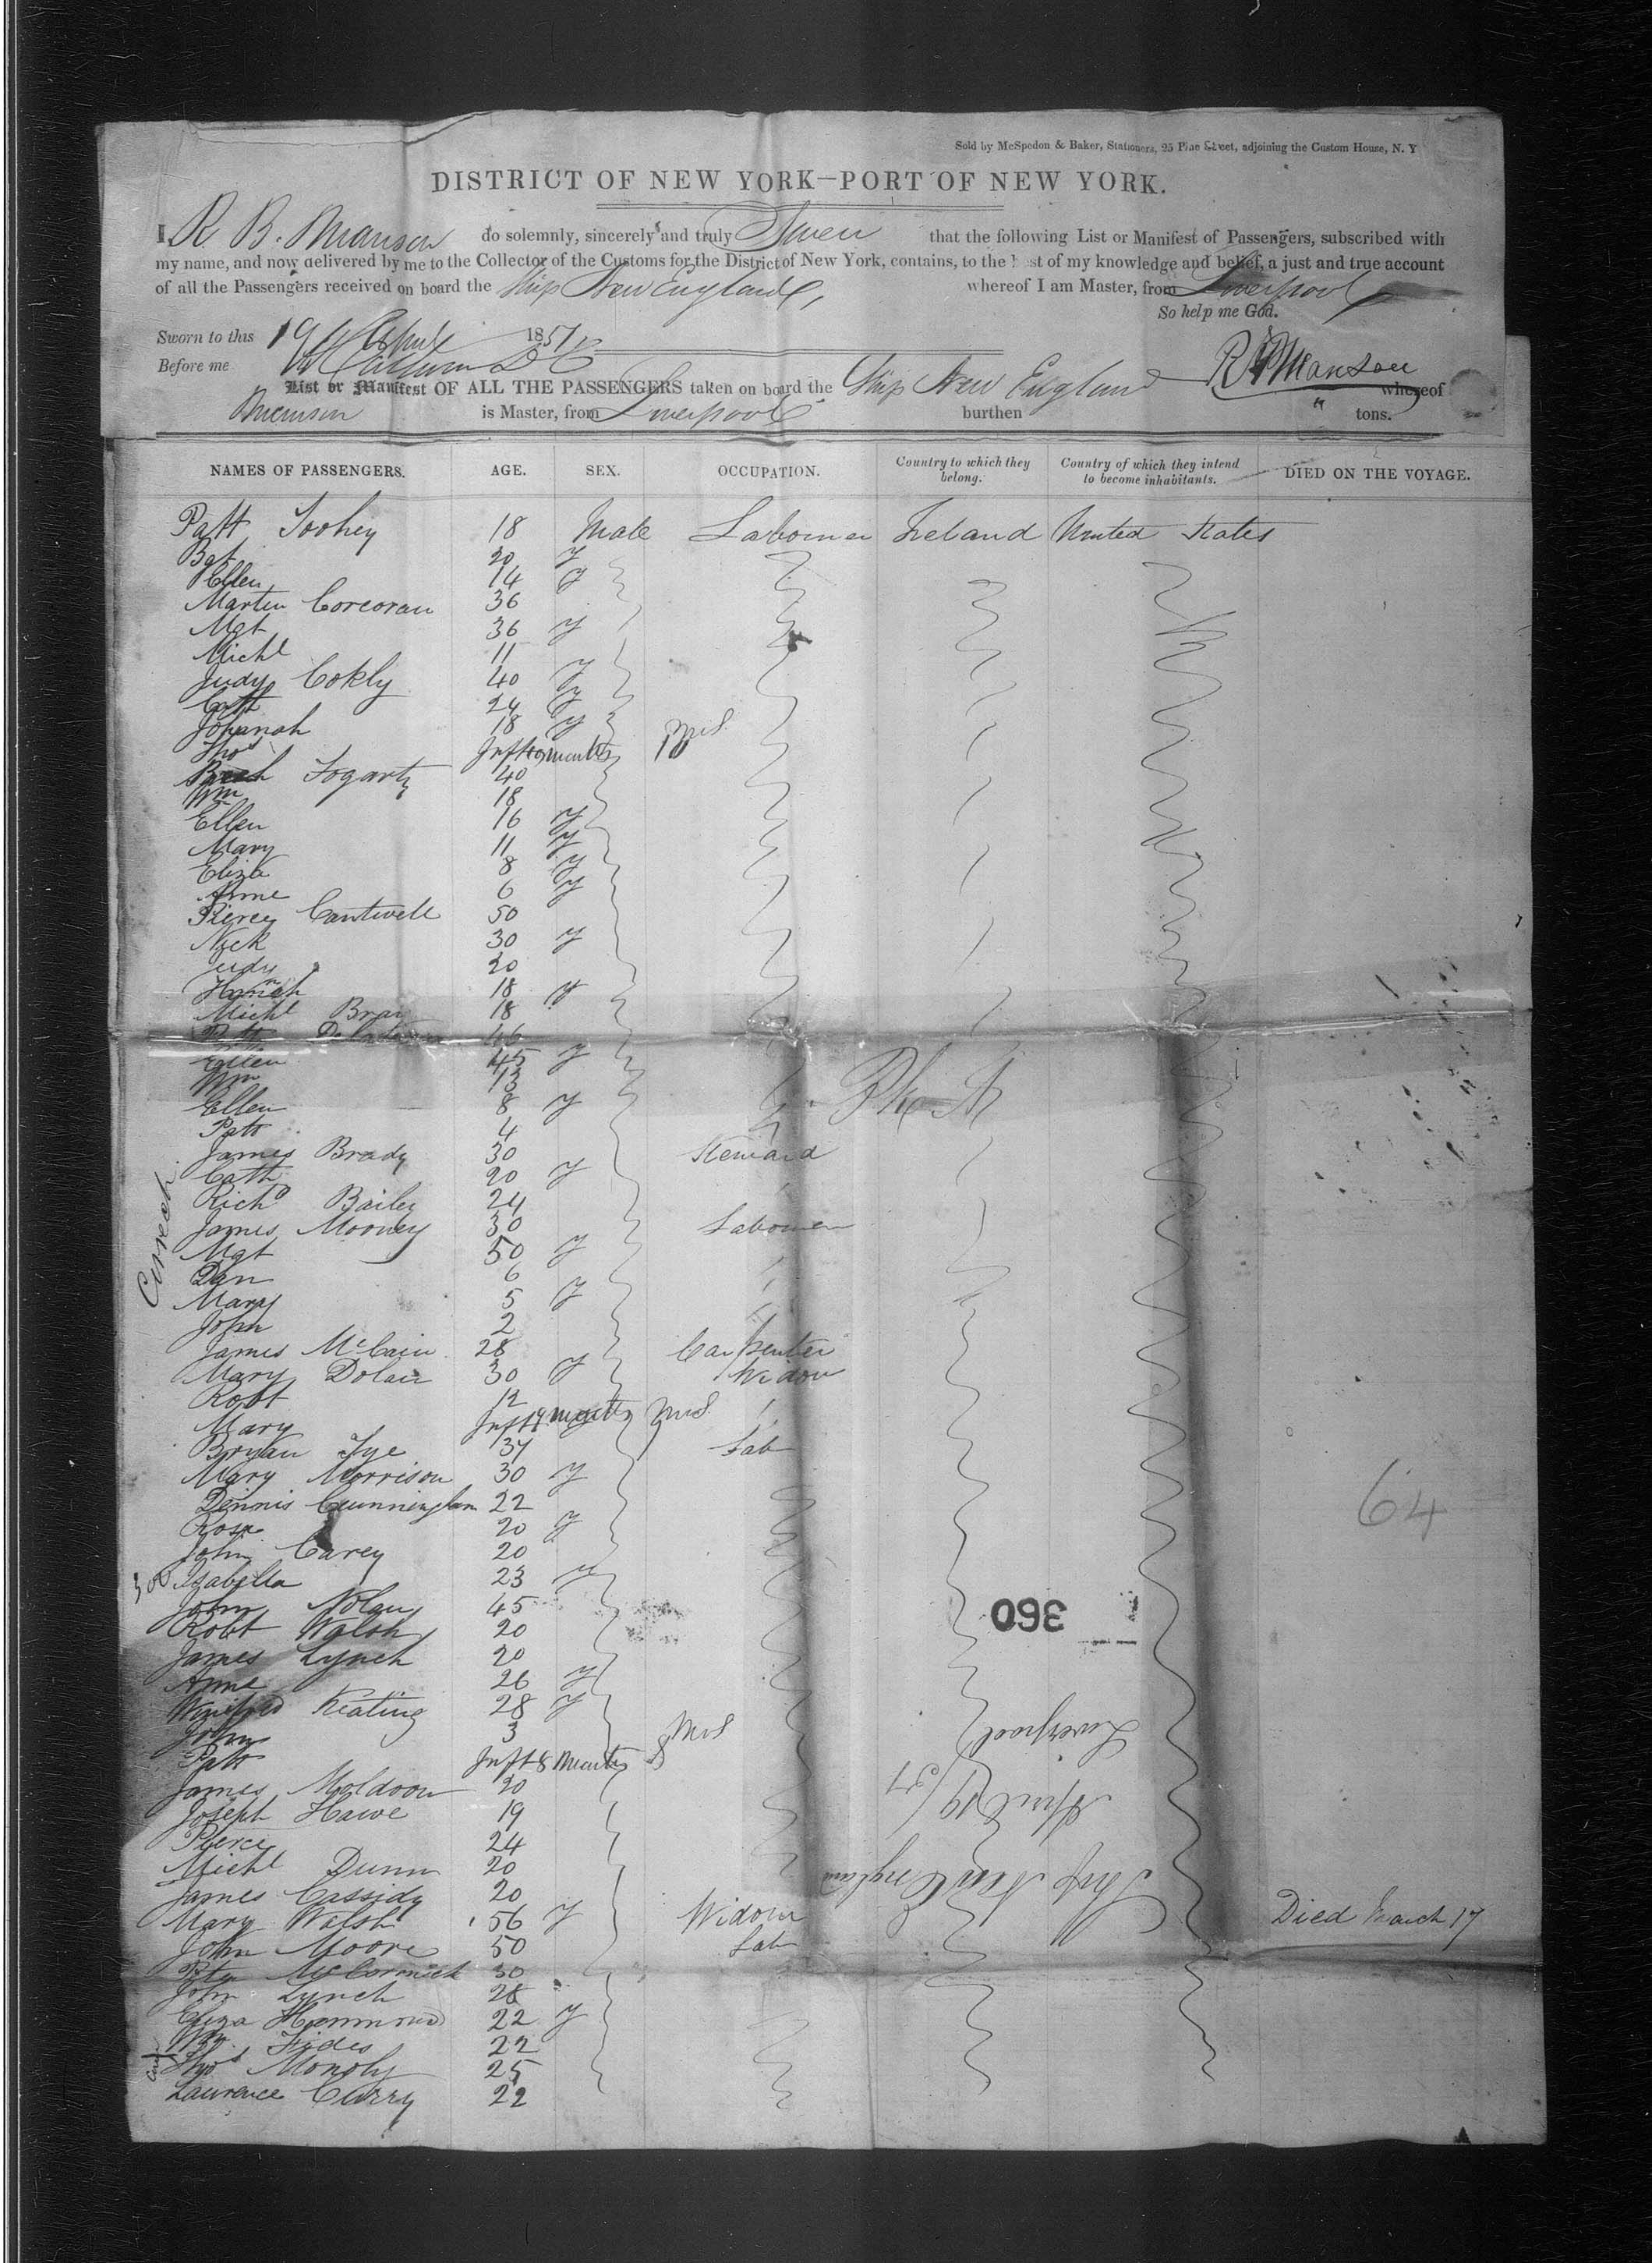 Sold by McSpedon & Baker, Stationers, 25 Pine Street, adjoining the Custom House, N. Y
DISTRICT OF NEW YORK—PORT OF NEW YORK.
I, R B. Manson do solemnly, sincerely and truly Swear that the following List or Manifest of Passengers, subscribed with
my name, and now delivered by me to the Collector of the Customs for the District of New York, contains, to the best of my knowledge and belief, a just and true account
of all the Passengers received on board the Ship New England, whereof I am Master, from Liverpool
So help me God.
Sworn to this 19 April 1851
Before me
R B Manson
List or Manifest OF ALL THE PASSENGERS taken on board the Ship New England whereof
Manson is Master, from Liverpool burthen " tons.
NAMES OF PASSENGERS. AGE. SEX. OCCUPATION. Country to which they belong. Country of which they intend to become inhabitants. DIED ON THE VOYAGE.
Patt Toohey 18 Male Labourer Ireland United States
20 f
Ellen 14 f
Martin Corcoran 36
Mgt 36 f
Michl 11
Judy Cokly 40 f
Cath 24 f
Johanah 18 f
Thos Inft 10 months 10 mS
Fogarty 40
Wm 18
Ellen 16 f
Mary 11 f
Eliza 8 f
Anne 6 f
Piercy Cantwell 50
Nick 30 f
Judy 20
Hannah 18 f
Michl Bray 18
46
Ellen 45 f
Wm 13
Ellen 8 f
Patt 4
James Brady 30 Steward
Cath 20 f
Richd Bailey 24
James Mooney 30 Labourer
Mgt 50 f
Dan 6
Mary 5 f
John 2
James McCain 28 Carpenter
Mary Dolan 30 f Widow
Robt 12
Mary Inft 9 months mS
Bryan Tye 37 Lab
Mary Morrison 30 f
Dennis Cunningham 22
Rose 20 f
John Carey 20
Isabella 23 f
John Nolan 45
Robt Walsh 20
James Lynch 20
Anne 26 f
Winifred Keating 28 f
John 3
Patt Inft 8 Months 8 mS
James Muldoon 20
Joseph Hawe 19
Pierce 24
Michl Dunn 20
James Cassidy 20
Mary Walsh 56 f Widow Died March 17
John Moore 50 Lab
Peter McCormick 30
John Lynch 28
Eliza Hammond 22 f
Wm Fides 22
Thos Monoly 25
Lawrence Curry 22
64
360
Ship New England
April 19/51
Liverpool